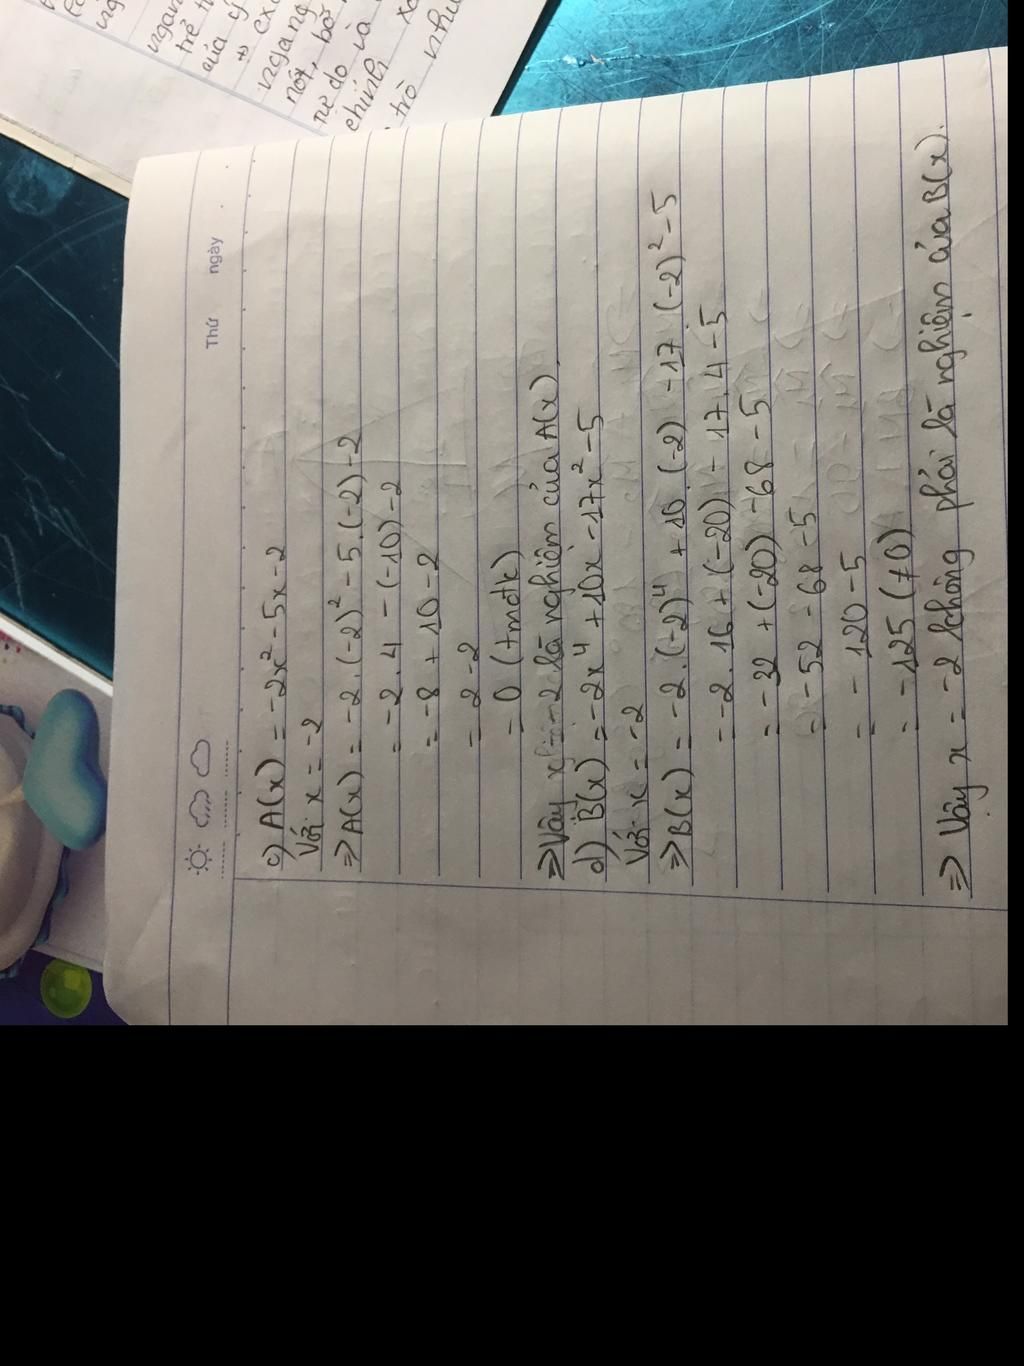 Thứ
ngày
c) A(x) = -2x² - 5x - 2
Với x = -2
⇒ A(x) = -2.(-2)² - 5.(-2) - 2
= -2.4 - (-10) - 2
= -8 + 10 - 2
= 2 - 2
= 0 (tmđk)
⇒ Vậy x = -2 là nghiệm của A(x).
d) B(x) = -2x⁴ + 10x - 17x² - 5
Với x = -2
⇒ B(x) = -2.(-2)⁴ + 10.(-2) - 17.(-2)² - 5
= -2.16 + (-20) - 17.4 - 5
= -32 + (-20) - 68 - 5
= -52 - 68 - 5
= -120 - 5
= -125 (≠0)
⇒ Vậy x = -2 không phải là nghiệm của B(x).
ngang
trẻ
của
ngang
nốt, bở
tự do và
chính
trò như